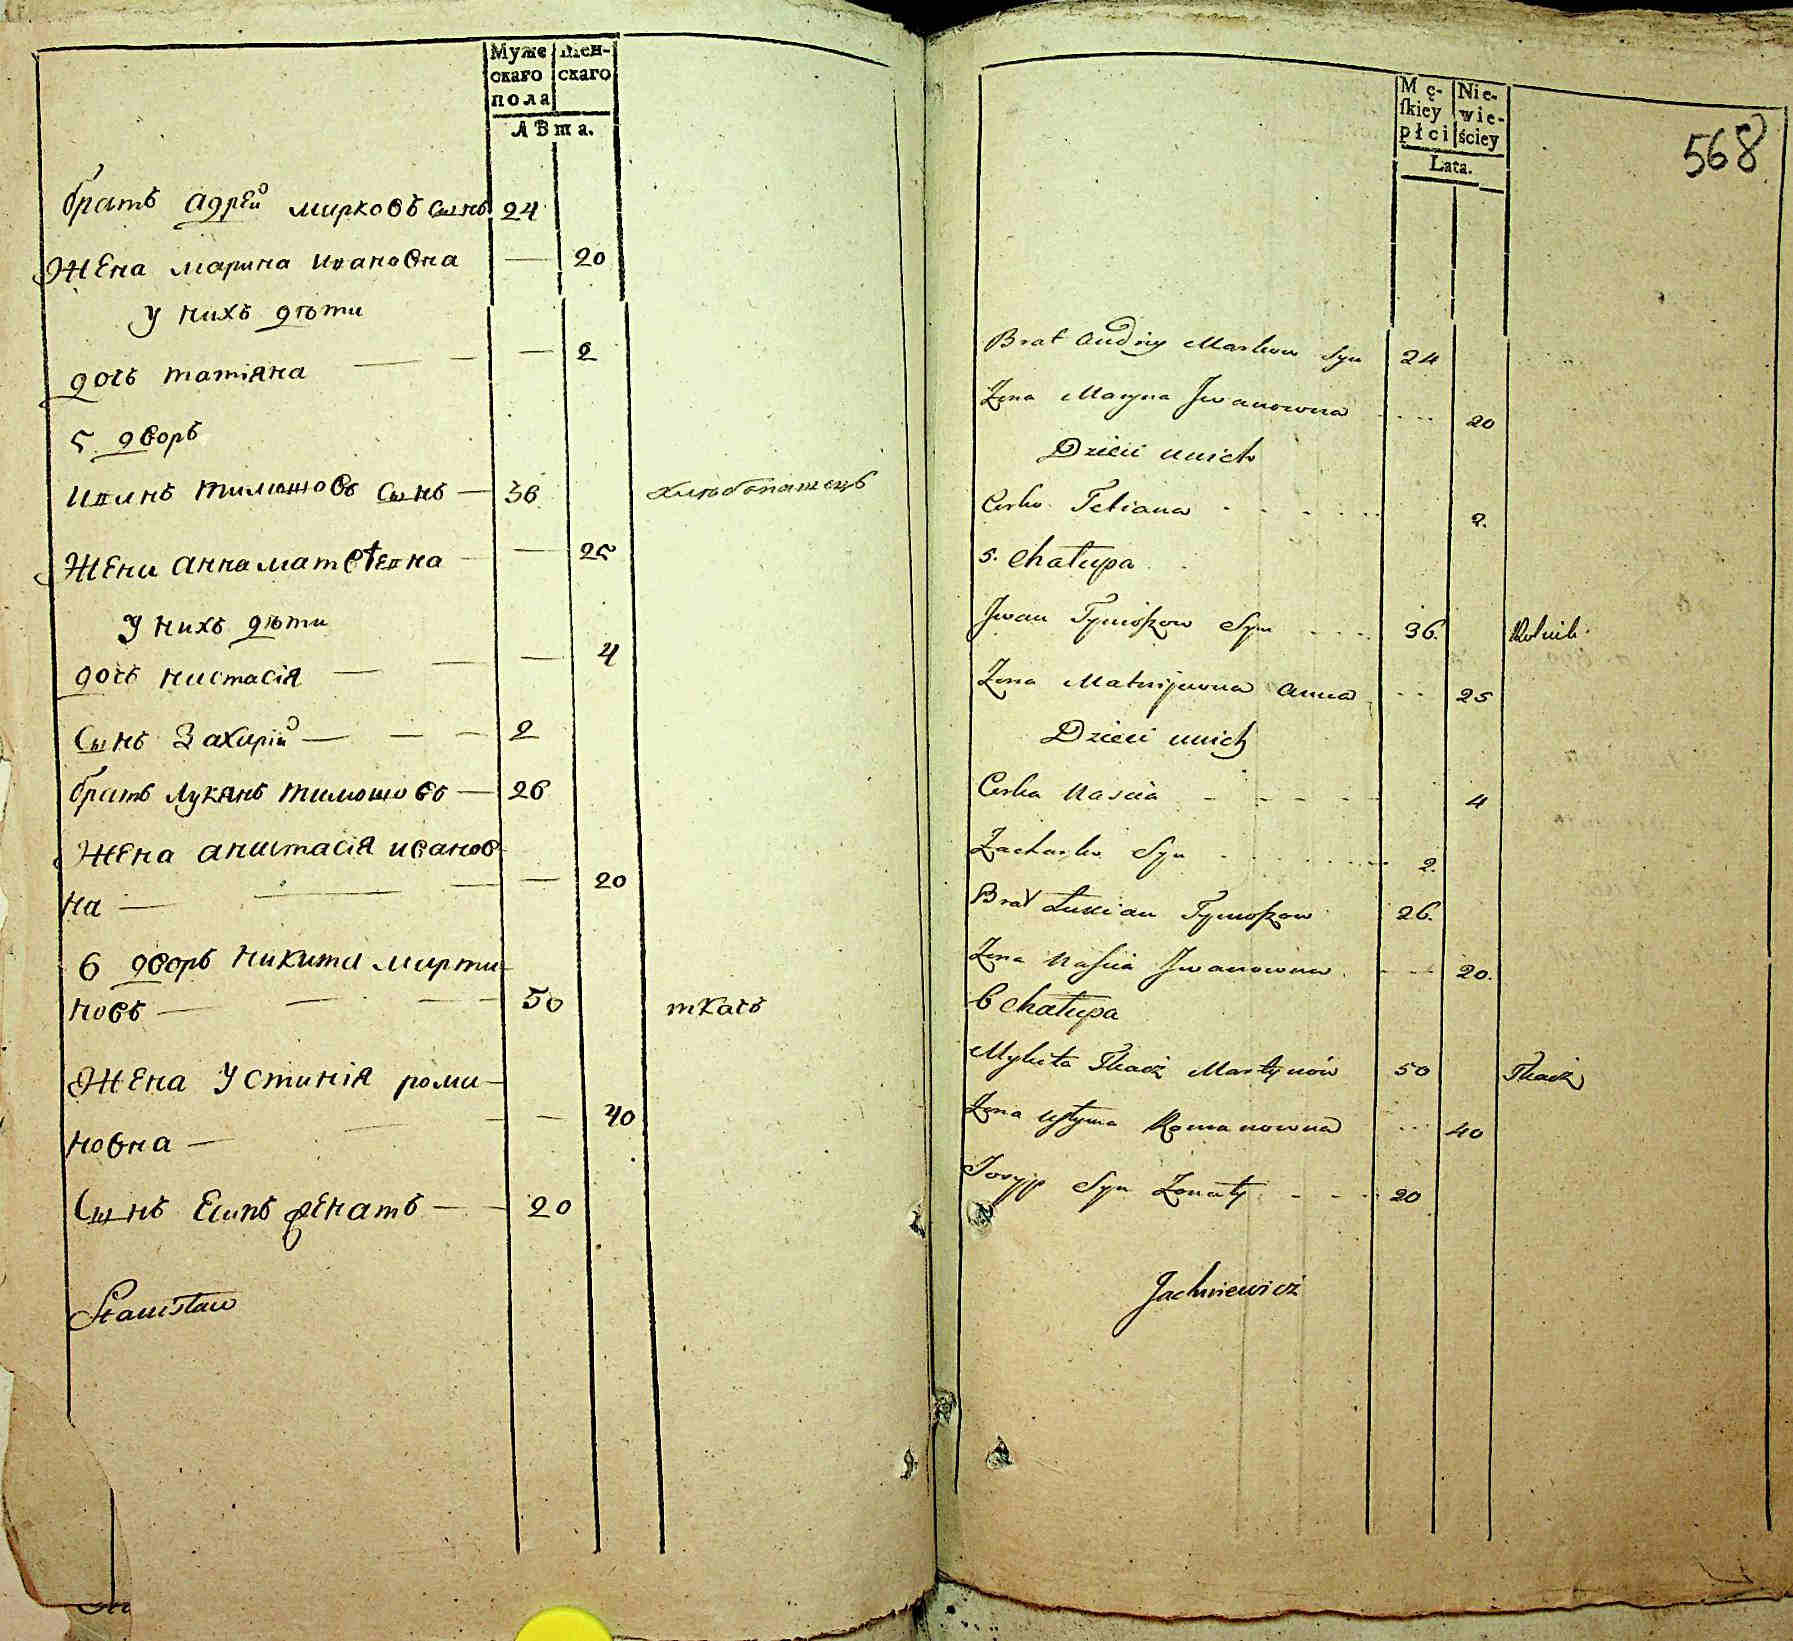 Муже
скаго
пола
Жен-
скаго
Лѣта.
братъ адрей марковъ сынъ 24
жена марина ивановна — 20
у нихъ дѣти
дочь татіяна — 2
5 дворъ
иванъ тимошовъ сынъ — 36 хлѣбопашецъ
жена анна матвѣевна — 25
у нихъ дѣти
дочь настасія — 4
сынъ Захарій — 2
братъ лукянъ тимошовъ — 26
жена анастасія иванов
на — 20
6 дворъ никита марти
новъ — 50 ткачъ
жена устинія рома
новна — 40
сынъ Есипъ женатъ — 20
Stanisław
568
Mę-
skiey
płci
Nie-
wie-
ściey
Lata.
Brat Andrey Markow Syn 24
Zona Maryna Jwanowna 20
Dzieci unich
Corka Tetiana 2.
5. Chałupa
Jwan Tymoszow Syn 36. Rolnik.
Zona Matwijowna Anna 25
Dzieci unich
Corka Nascia 4
Zacharko Syn 2.
Brat Łukian Tymoszow 26.
Zona Nascia Jwanowna 20.
6 Chałupa
Mykita Tkacz Martynów 50 Tkacz
Zona Ustyma Romanowna 40
Josyp Syn Zonaty 20
Jachniewicz